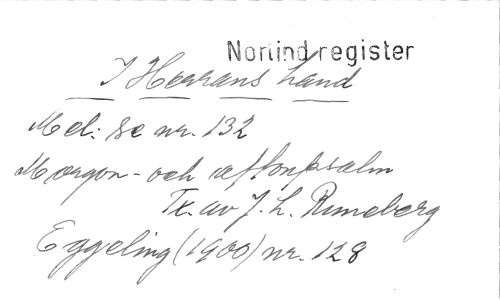 Norlind register
I Herrans hand
Mel: se nr. 132
Morgon- och aftonpsalm
Tx. av J. L. Runeberg
Eggeling (1900) nr. 128